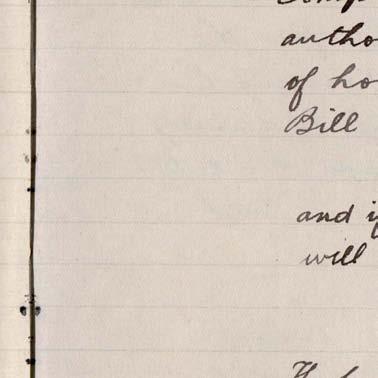 autho
of ho
Bill
and i
will